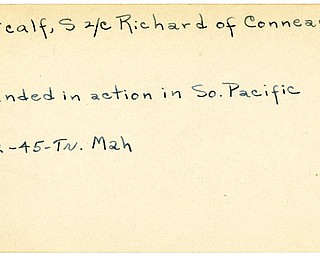 calf, S 2/c Richard of Connea
nded in action in So. Pacific
-45-Tr. Mah